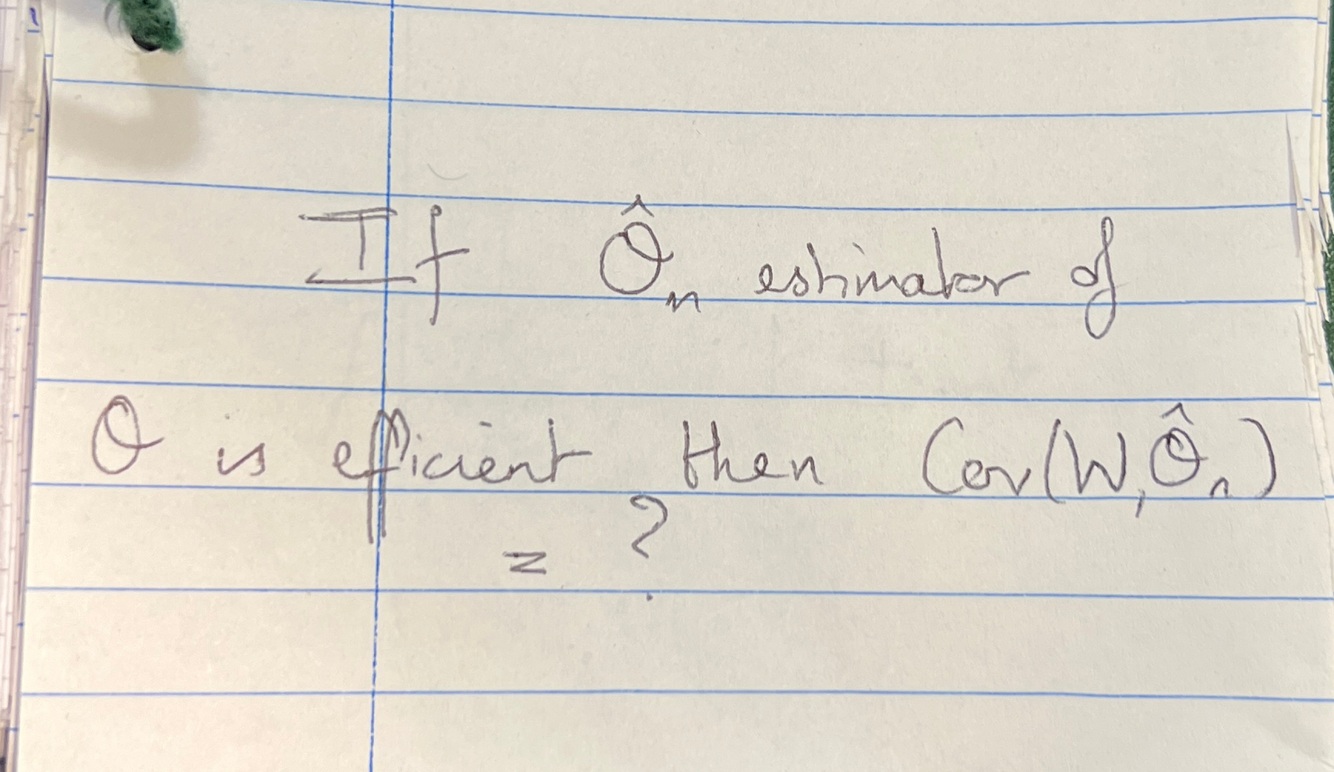 If θ̂ₙ estimator of
θ is efficient then Cov(W, θ̂ₙ)
= ?